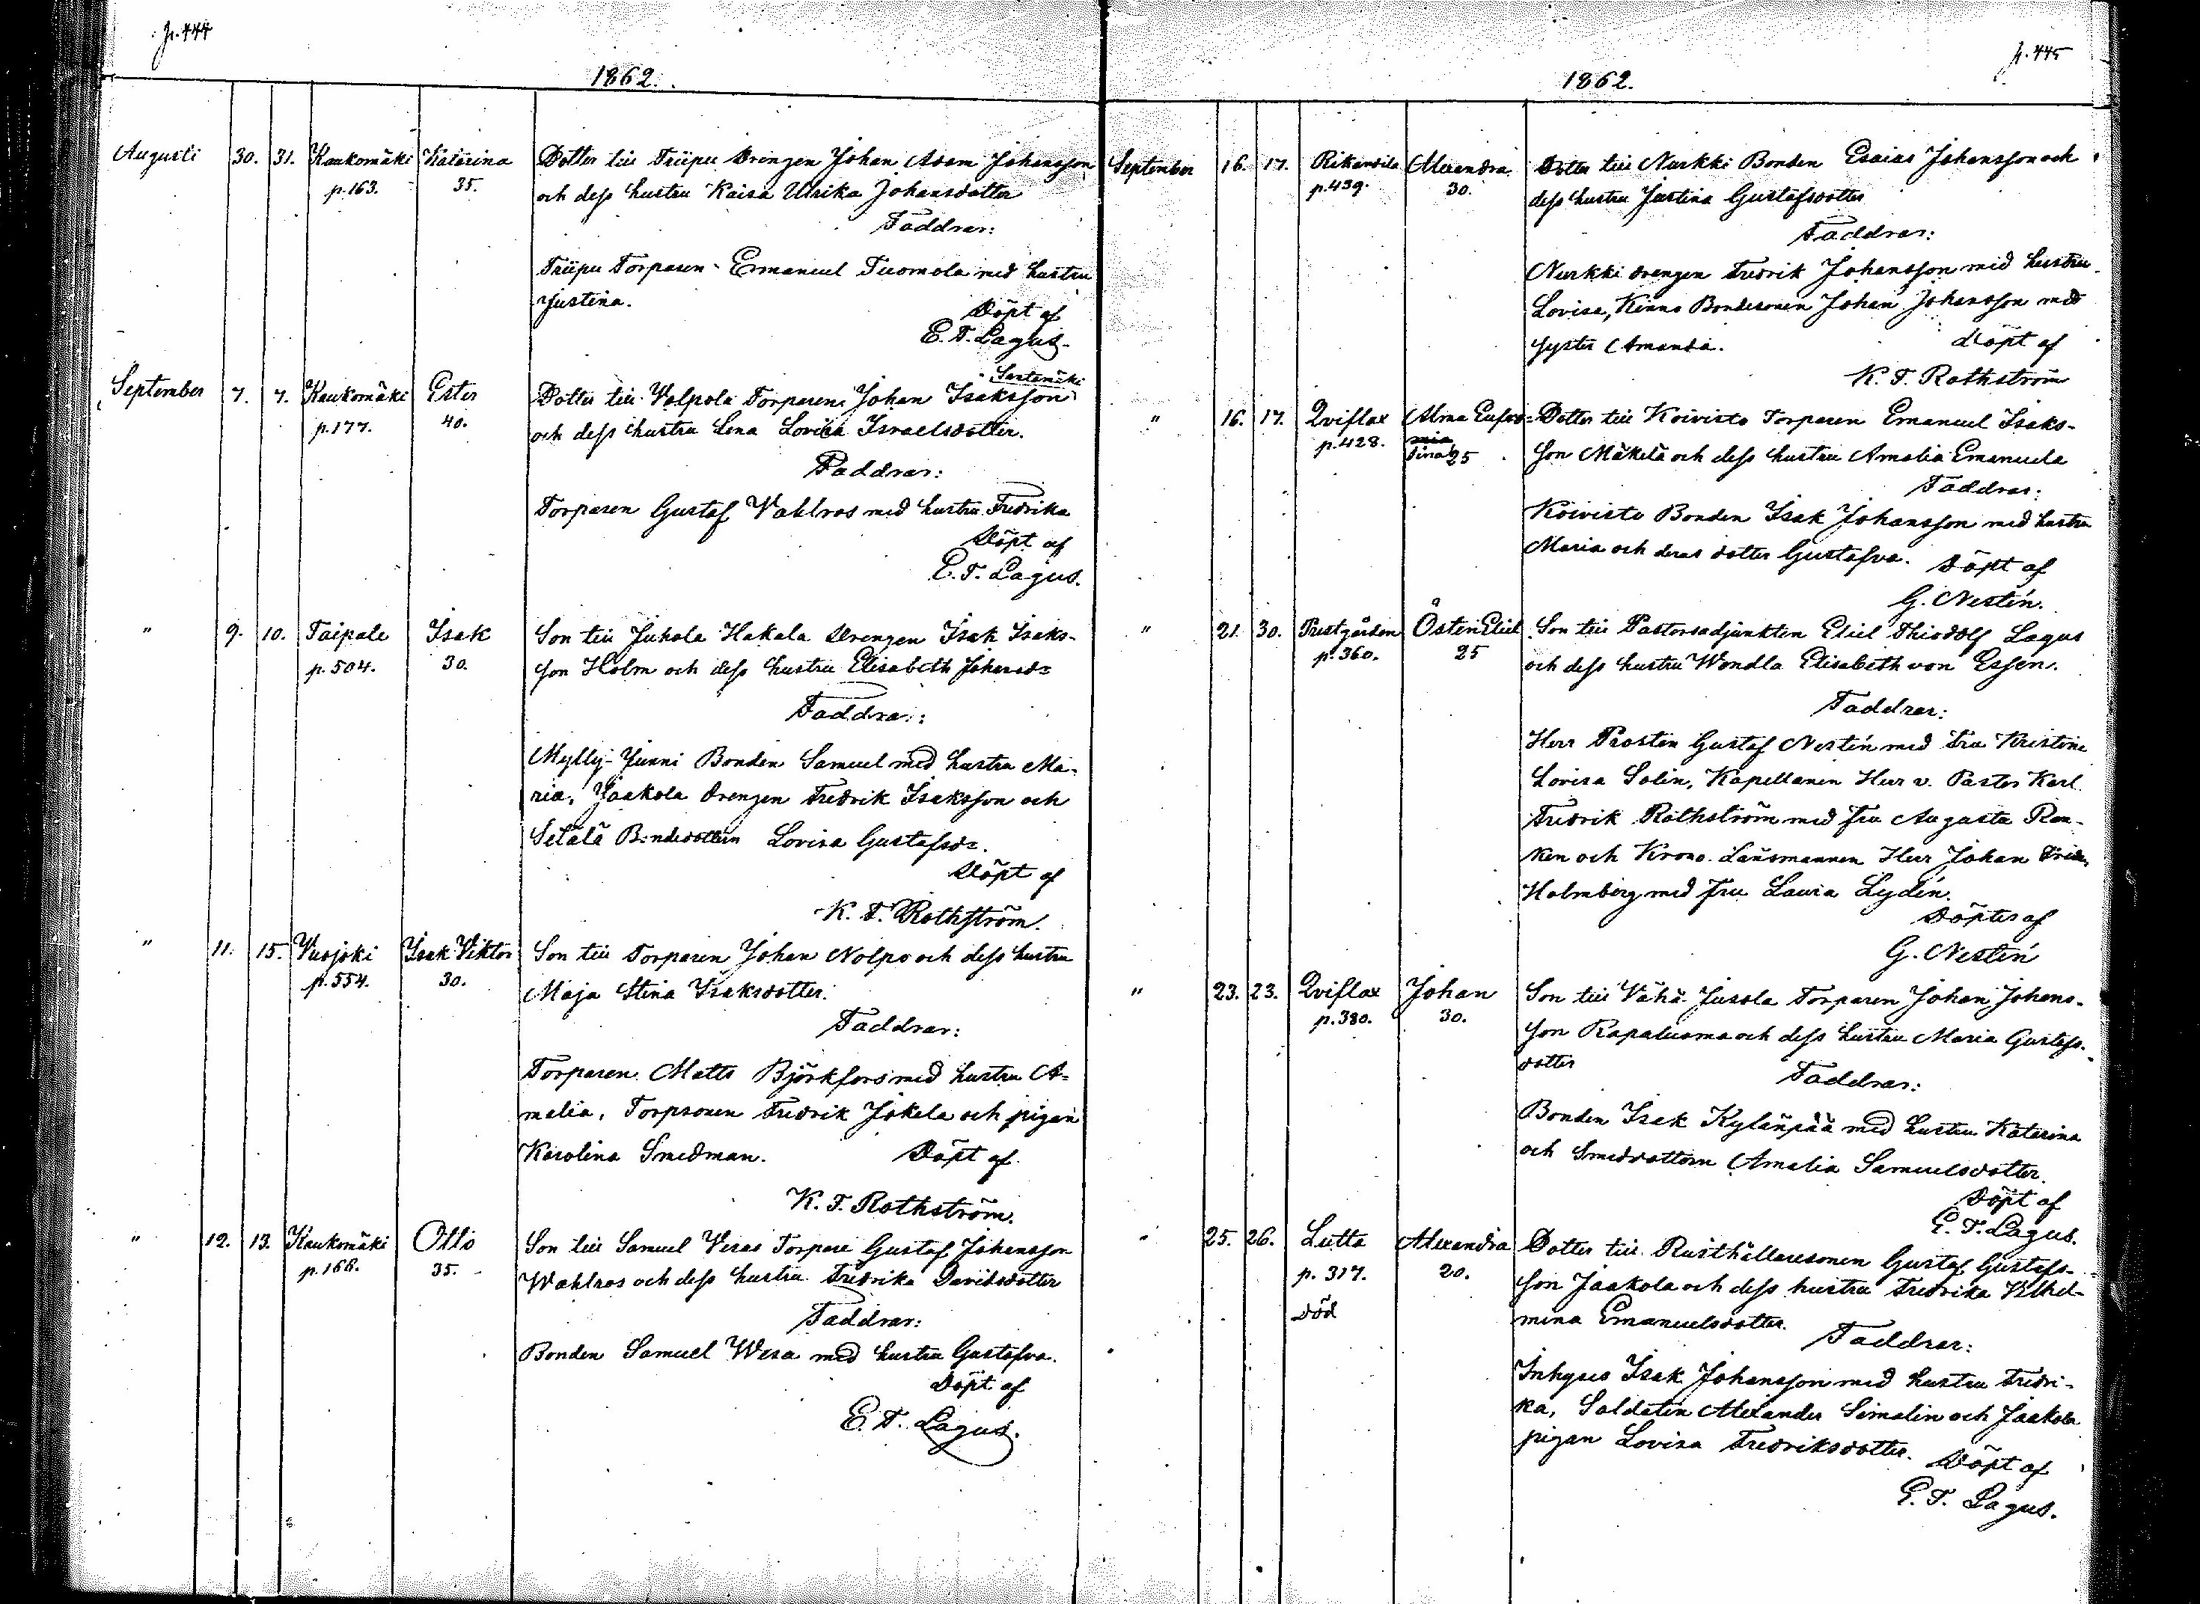 p. 444
1862.
Augusti 30. 31. Kaukomäki Katarina Dotter till Triipu Drengen Johan Adam Johansson
p. 163. 35. och dess hustru Kaisa Ulrika Johansdotter
Faddrar:
Triipu Torparen Emanuel Tuomola med hustru
Justina.
Döpt af
E. T. Lagus.
September 7. 7. Kaukomäki Ester Dotter till Valpola Torparen Johan Isaksson Santamäki
p. 177. 40. och dess hustru Lena Lovisa Israelsdotter.
Faddrar:
Torparen Gustaf Vahlros med hustru Fredrika
Döpt af
E. T. Lagus.
" 9. 10. Taipale Isak Son till Juhola Hakala Drengen Isak Isaks-
p. 504. 30. son Holm och dess hustru Elisabeth Johansd=
Faddrar:
Mylly-Junni Bonden Samuel med hustru Ma-
ria, Jaakola drengen Fredrik Isaksson och
Setälä Bondedottern Lovisa Gustafsd=.
Döpt af
K. F. Rothström.
" 11. 15. Vuojoki Isak Viktor Son till Torparen Johan Nolpo och dess hustru
p. 554. 30. Maja Stina Isaksdotter.
Faddrar:
Torparen Matts Björkfors med hustru A=
malia, Torpsonen Fredrik Jokela och pigan
Karolina Smedman. Döpt af
K. F. Rothström.
" 12. 13. Kaukomäki Otto Son till Samuel Veras Torpare Gustaf Johansson
p. 166. 35. Wahlros och dess hustru Fredrika Davidsdotter
Faddrar:
Bonden Samuel Wera med hustru Gustafva.
Döpt af
E. T. Lagus.
p. 445
1862.
September 16. 17. Rikantila Alexandra Dotter till Nurkki Bonden Esaias Johansson och
p. 439. 30. dess hustru Justina Gustafsdotter
Faddrar:
Nurkki drengen Fredrik Johansson med hustru
Lovisa, Kinno Bondesonen Johan Johansson med
syster Amanda. Döpt af
K. F. Rothström
" 16. 17. Qviflax Alma Eufro= Dotter till Koivisto Torparen Emanuel Isaks-
p. 428. sina 25 son Mäkelä och dess hustru Amalia Emanuela
Faddrar:
Koivisto Bonden Isak Johansson med hustru
Maria och deras dotter Gustafva. Döpt af
G. Nestén.
" 21. 30. Prestgården Östen Eliel Son till Pastorsadjunkten Eliel Thiodolf Lagus
p. 360. 25 och dess hustru Wendla Elisabeth von Essen.
Faddrar:
Herr Prosten Gustaf Nestén med fru Kristina
Lovisa Solin, Kapellanen Herr v. Pastor Karl
Fredrik Rothström med fru Augusta Ren-
ken och Krono Länsmannen Herr Johan Fredr.
Holmberg med fru Laura Lydén.
Döptes af
G. Nestén
" 23. 23. Qviflax Johan Son till Vähä Jusola Torparen Johan Johans-
p. 380. 30. son Rapaluoma och dess hustru Maria Gustafs-
dotter
Faddrar:
Bonden Isak Kylänpää med hustru Katarina
och Smeddottern Amalia Samuelsdotter.
Döpt af
E. T. Lagus.
" 25. 26. Lutta Alexandra Dotter till Rusthållaresonen Gustaf Gustafs-
p. 317. 20. son Jaakola och dess hustru Fredrika Vilhel-
död mina Emanuelsdotter.
Faddrar:
Inhyses Isak Johansson med hustru Fredri-
ka, Soldaten Alexander Simalin och Jaakola
pigan Lovisa Fredriksdotter. Döpt af
E. T. Lagus.